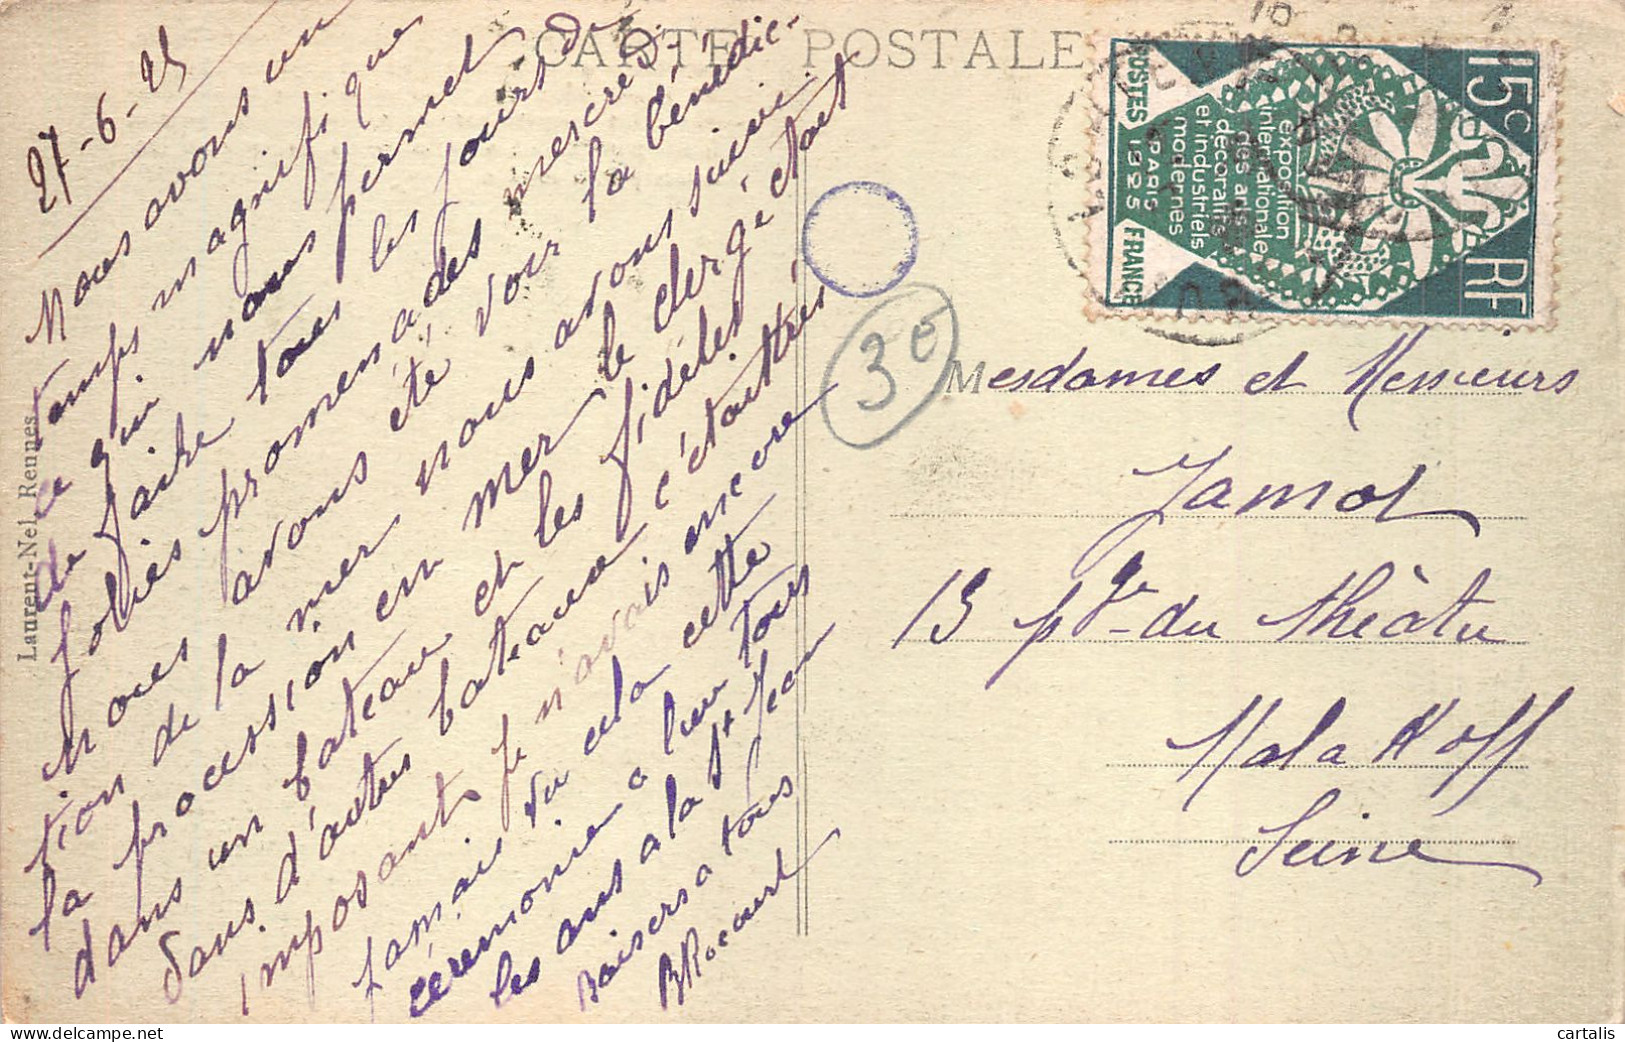 CARTE POSTALE
27-6-25
Nous avons un
temps magnifique
ce qui nous permet
de faire tous les jours de
jolies promenades mercredi
nous avons été voir la bénédic-
tion de la mer nous avons suivi
la procession en mer le clergé était
dans un bateau et les fidèles
dans d'autres bateaux c'était très
imposant je n'avais encore
jamais vu cela cette
cérémonie a lieu tous
les ans a la St Jean
Baisers a tous
Laurent-Nel, Rennes
15c
RF
POSTES FRANCE
exposition
internationale
des arts
décoratifs
et industriels
modernes
PARIS
1925
3€
Mesdames et Messieurs
Jamot
13 pge du théâtre
Malakoff
Seine
cartalis